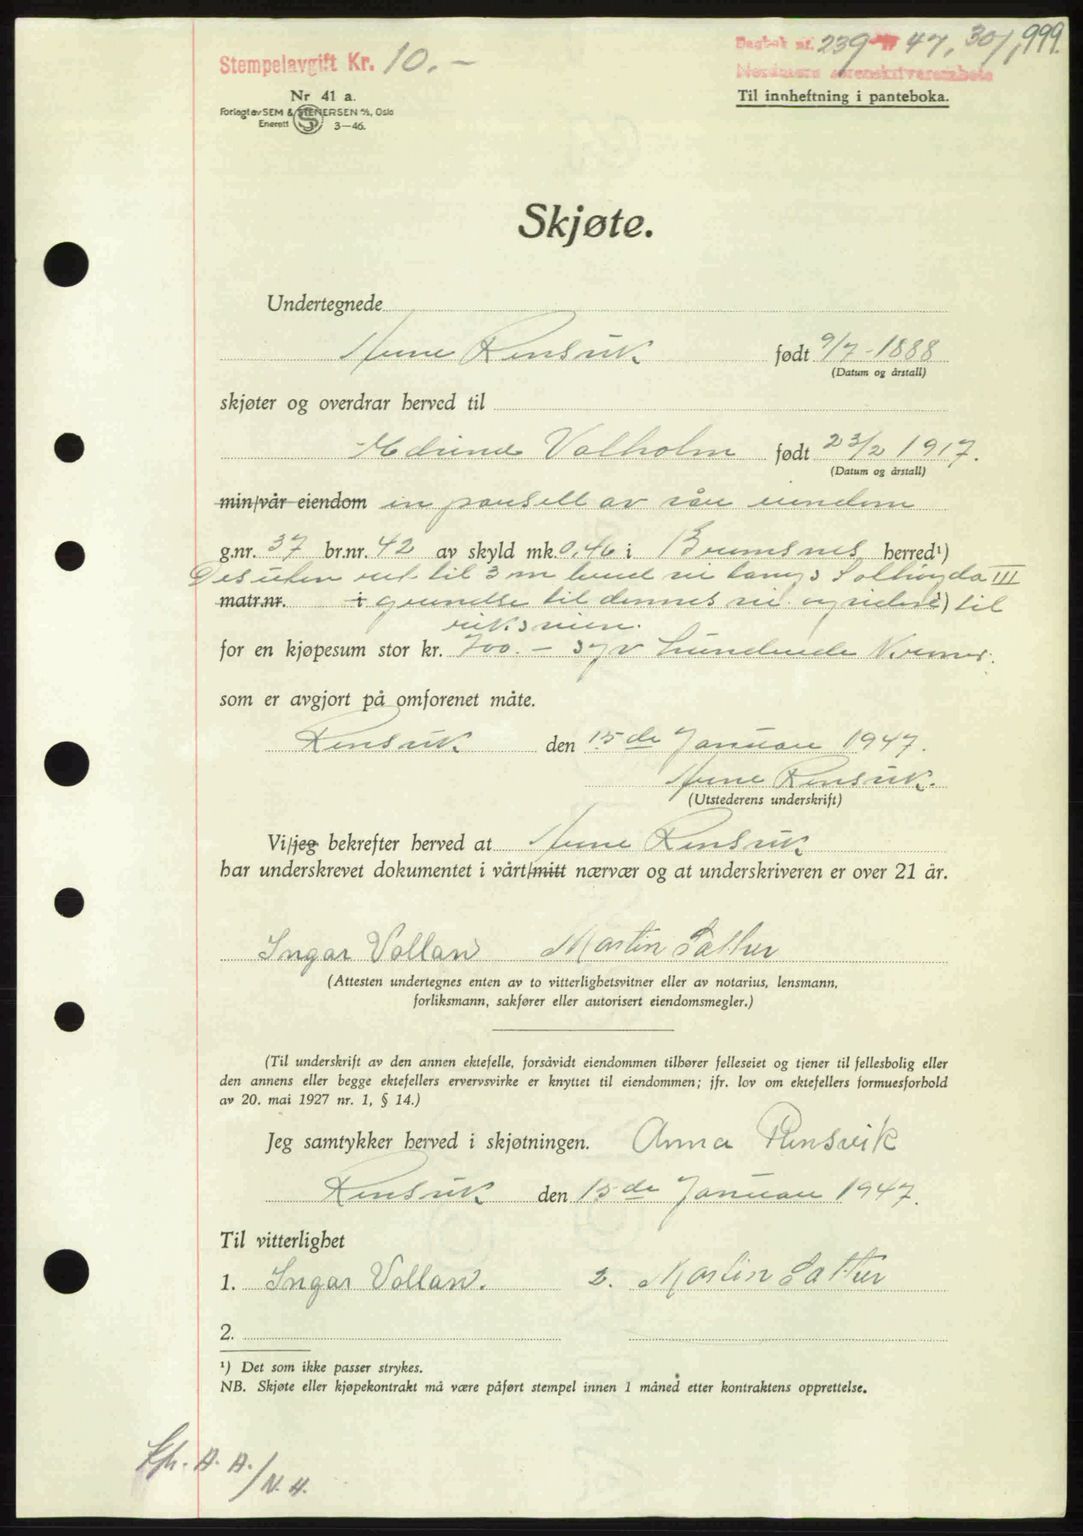 Stempelavgift Kr. 10.-
Dagbok nr. 239 47, 30/1, 999.
Nordmøre sorenskriverembete
Nr 41 a.
Til innheftning i panteboka.
Forlagt av SEM & STENERSEN A/S, Oslo
Enerett 3-46.
Skjøte.
Undertegnede
Arne Rensvik født 9/7-1888
(Datum og årstall)
skjøter og overdrar herved til
Edvind Valholm født 23/2 1917.
(Datum og årstall)
min/vår eiendom en parsell av vår eiendom
g.nr. 37 br.nr. 42 av skyld mk. 0,46 i Bremsnes herred¹)
Desuten ret til 3 m bred vei langs Solhøgda III
matr.nr. i grendse til dennes vei og videre ¹) til
riksveien.
for en kjøpesum stor kr. 700.- syv hundrede Kroner.
som er avgjort på omforenet måte.
Rensvik den 15de Januar 1947.
Arne Rensvik.
(Utstederens underskrift)
Vi/jeg bekrefter herved at Arne Rensvik
har underskrevet dokumentet i vårt/mitt nærvær og at underskriveren er over 21 år.
Ingar Vollan Martin Sæther
(Attesten undertegnes enten av to vitterlighetsvitner eller av notarius, lensmann,
forliksmann, sakfører eller autorisert eiendomsmegler.)
(Til underskrift av den annen ektefelle, forsåvidt eiendommen tilhører felleseiet og tjener til fellesbolig eller
den annens eller begge ektefellers ervervsvirke er knyttet til eiendommen; jfr. lov om ektefellers formuesforhold
av 20. mai 1927 nr. 1, § 14.)
Jeg samtykker herved i skjøtningen. Anna Rensvik
Rensvik den 15de Januar 1947.
Til vitterlighet
1. Ingar Vollan. 2. Martin Sæther
2.
¹) Det som ikke passer strykes.
NB. Skjøte eller kjøpekontrakt må være påført stempel innen 1 måned etter kontraktens opprettelse.
A. A./N. H.